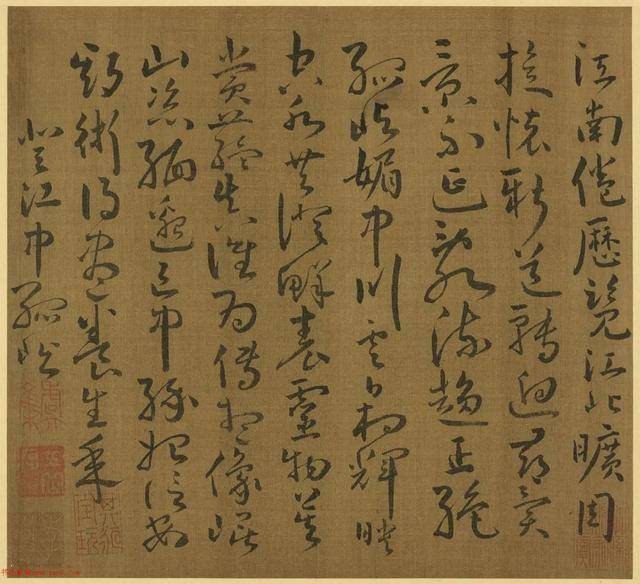 江南倦歷覽江北曠周
旋懷新道轉迥尋異
景不延亂流趨正絕
孤嶼媚中川雲日相輝映
空水共澄鮮表靈物莫
賞蘊真誰為傳想像崐
山姿緬邈區中緣始信安
期術得盡養生秊
登江中孤嶼